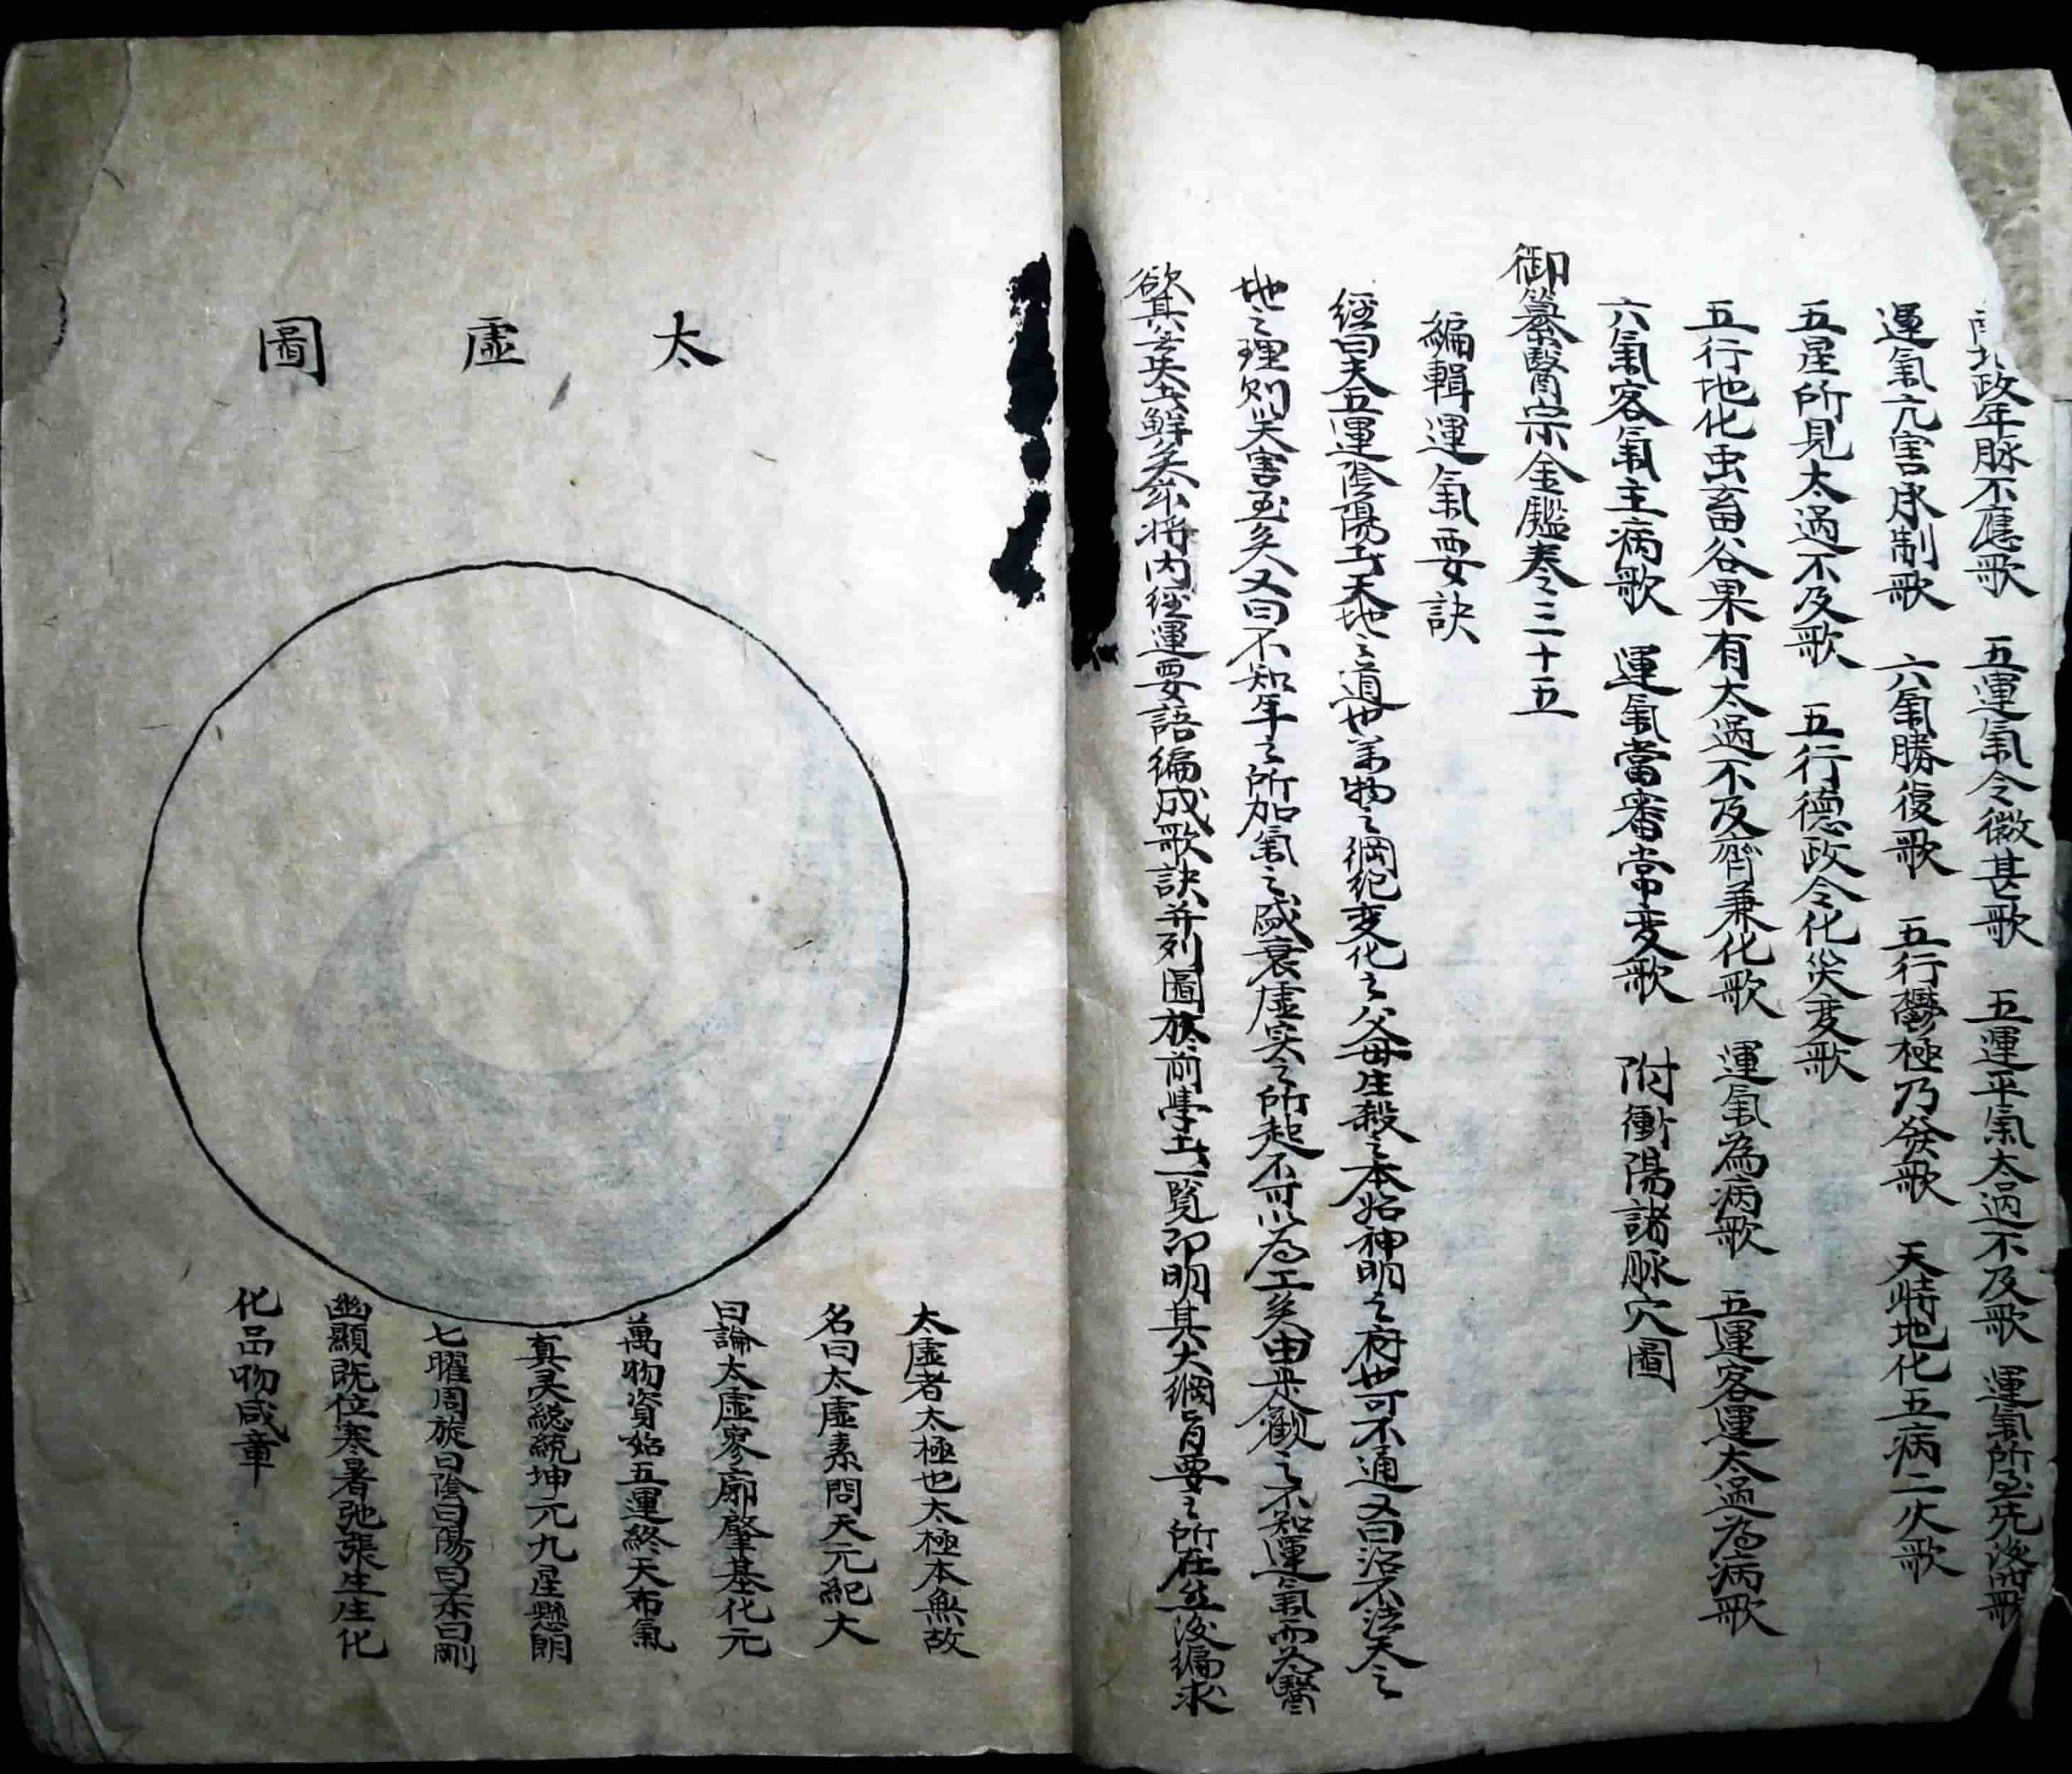 北政年脉不應歌　五運氣令微甚歌　五運平氣太過不及歌　運氣所至先後歌
運氣亢害承制歌　六氣勝復歌　五行鬱極乃發歌　天時地化五病二火歌
五星所見太過不及歌　五行德政令化災変歌
五行地化虫畜谷果有太過不及齊兼化歌　運氣為病歌　五運客運太過為病歌
六氣客氣主病歌　運氣當審常変歌　附衝陽諸脉穴圖
御纂醫宗金鑑卷三十五
編輯運氣要訣
經曰夫五運陰陽者天地之道也萬物之綱紀変化之父母生殺之本始神明之府也可不通又曰治不法天之
地之理則災害至矣又曰不知年之所加氣之盛衰虛实之所起不可以為工矣由是觀之不知運氣而為醫
欲其無失者鮮矣茲将内經運要語編成歌訣并列圖於前學者一覧即明其大綱旨要之所在然後編求
太虛圖
太虛者太極也太極本無故
名曰太虛素問天元紀大
曰論太虛寥廓肇基化元
萬物資始五運終天布氣
真灵總統坤元九星懸朗
七曜周旋曰陰曰陽曰柔曰剛
幽顯既位寒暑弛張生生化
化品物咸章